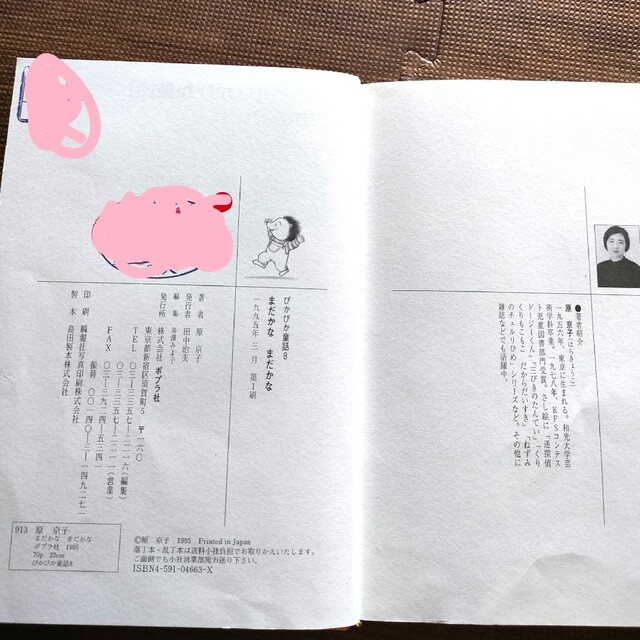 ●著者紹介
原 京子(はらきょうこ)
一九五六年、東京に生まれる。和光大学芸
術学科卒業。一九七八年、KFSコンテス
ト児童図書部門受賞。さし絵に「迷探偵
ドージーくん」「三びきのたんてい」「くり
くりもこもこ だからだいすき」「ねずみ
のチェルりひめ」シリーズなど。その他に
雑誌などでも活躍中。
ぴかぴか童話8
まだかな まだかな
一九九五年 三月 第1刷
著者 原 京子
発行者 田中治夫
編集 井澤みよ子
発行所 株式会社 ポプラ社
東京都新宿区須賀町5 〒一六〇
TEL 〇三―三三五七―二二一六(編集)
〇三―三三五七―二二一一(営業)
FAX 〇三―三九二四―五三四一
振替 〇〇一四〇―三―一四九二七一
印刷 瞬報社写真印刷株式会社
製本 島田製本株式会社
©原 京子 1995 Printed in Japan
落丁本・乱丁本は送料小社負担でお取りかえいたします。
ご面倒でも小社営業部宛お送り下さい。
ISBN4-591-04663-X
913 原 京子
まだかな まだかな
ポプラ社 1995
70p 22cm
ぴかぴか童話8